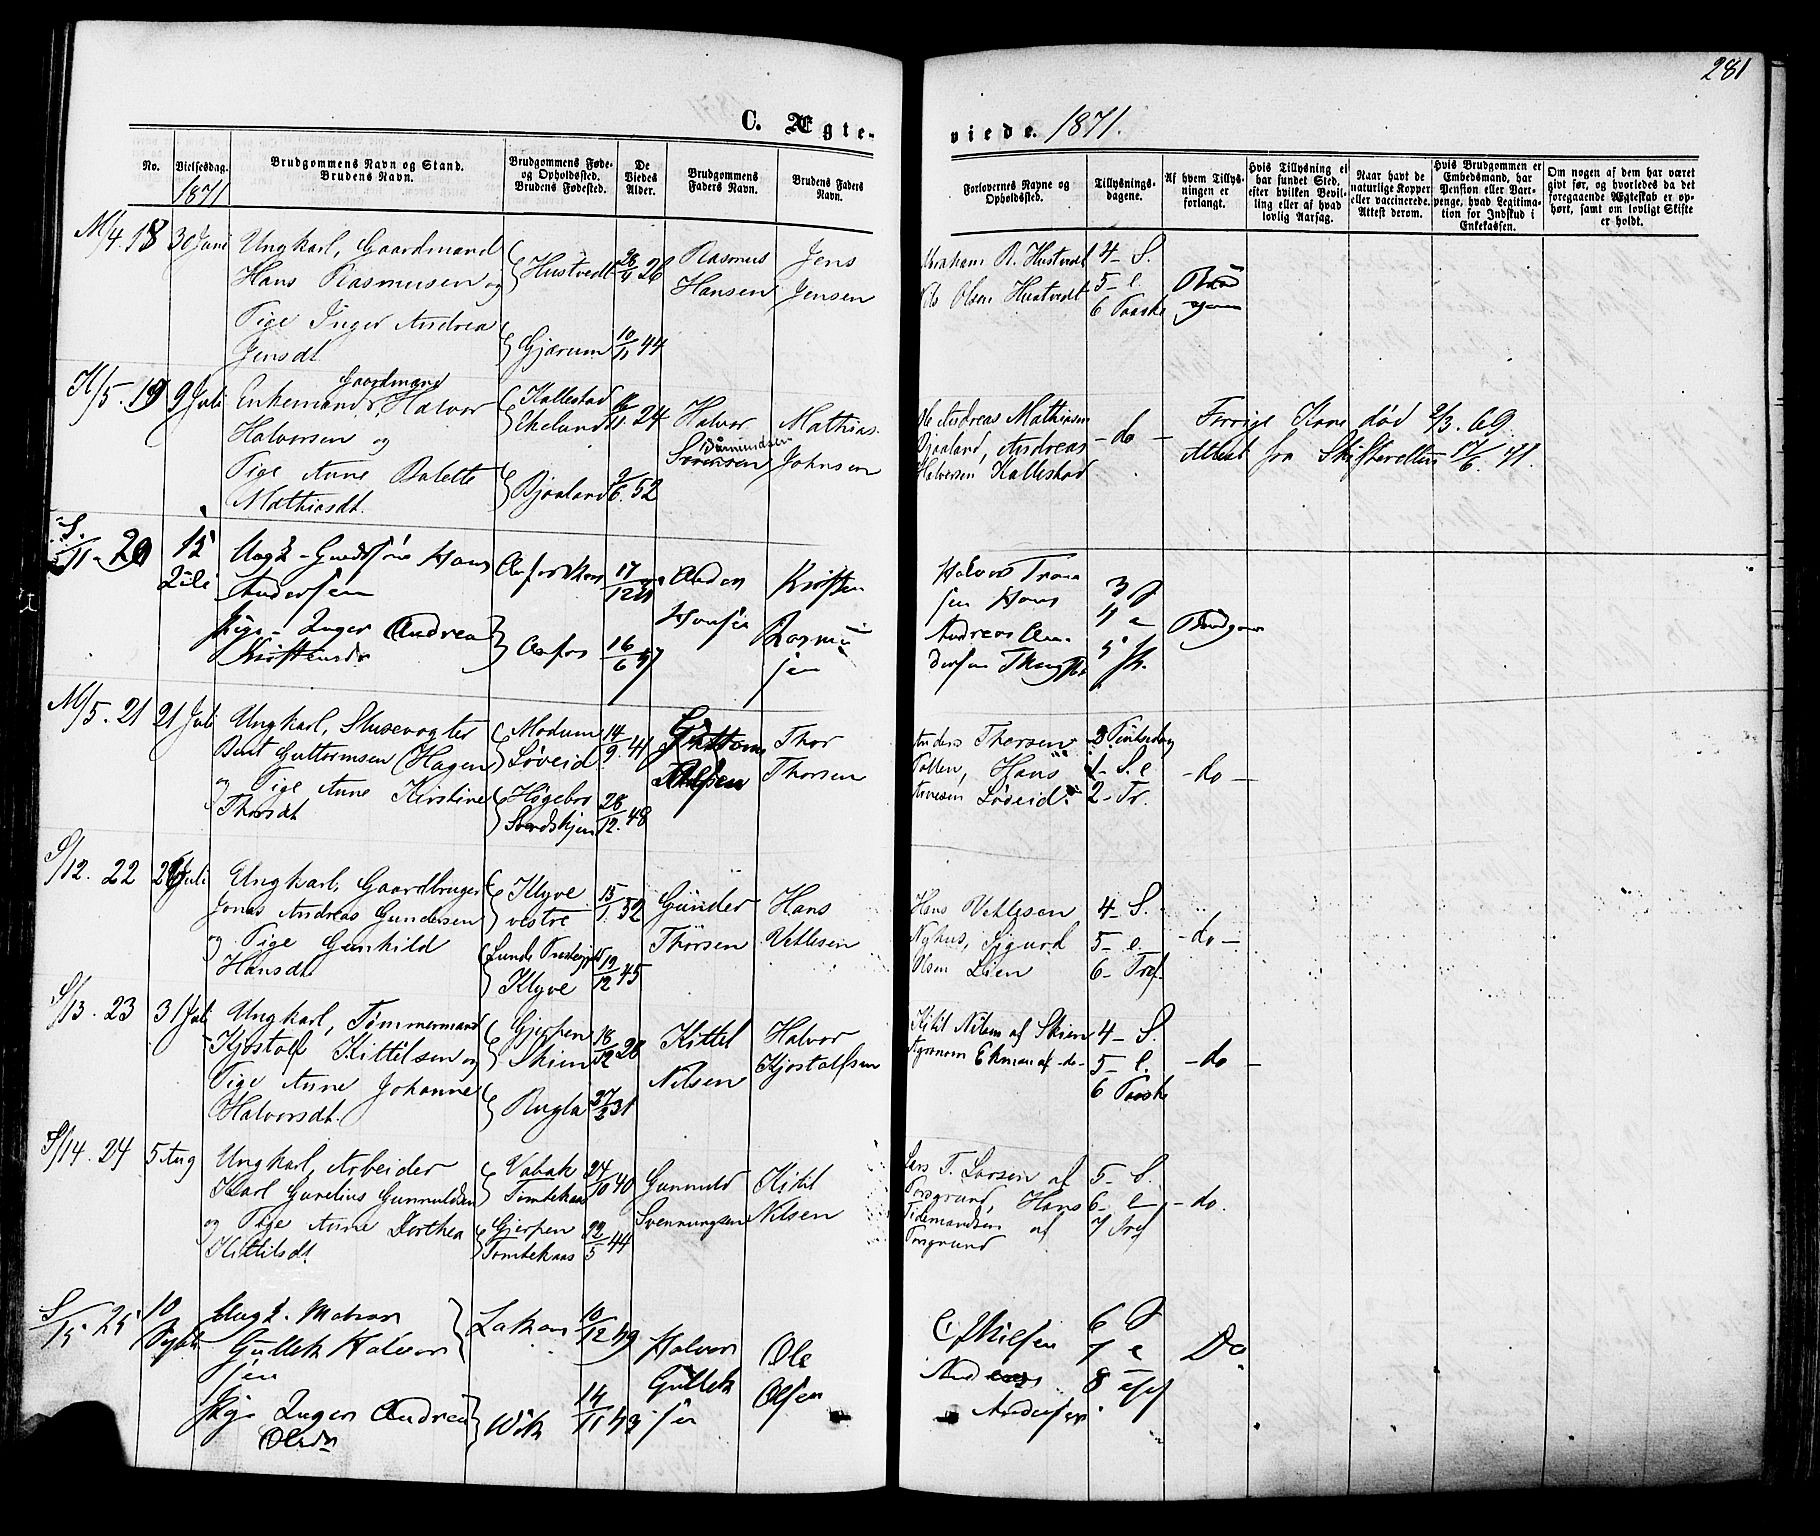 281
C. Ægte-
viede. 1871.
No.
Vielsesdag.
1871
Brudgommens Navn og Stand.
Brudens Navn.
Brudgommens Føde-
og Opholdssted.
Brudens Fødested.
De
Viedes
Alder.
Brudgommens
Faders Navn.
Brudens Faders
Navn.
Forlovernes Navne og
Opholdssted.
Tillysnings-
dagene.
Af hvem Tillys-
ningen er
forlangt.
Hvis Tillysning ei
har fundet Sted,
efter hvilken Bevil-
ling eller af hvad
lovlig Aarsag.
Naar havt de
naturlige Kopper
eller vaccinerede.
Attest derom.
Hvis Brudgommen er
Embedsmand, har
Pension eller Vart-
penge, hvad Legitima-
tion for Indskud i
Enkekassen.
Om nogen af dem har været
givt før, og hvorledes da det
foregaaende Ægteskab er op-
hørt, samt om lovligt Skifte
er holdt.
M/4. 18
30 Juni
Ungkarl, Gaardmand
Hans Rasmussen og
Pige Inger Andrea
Jensdt.
Hustvedt
Gjærum
26
10/11 44
Rasmus
Hansen
Jens
Jensen
Abraham R. Hustvedt
Ole Olsen Hustvedt
4 - S.
5 - e.
6 Paaske
Brud
gom
K/5. 19
9 Juli
Gaardmand
Enkemand Halvor
Halvorsen og
Pige Anne Bolette
Mathiasdt.
Kallestad
Ekelund
Bjaaland
24
9/6. 52
Halvor
Sørensen
Mathias
Johnsen
Ole Andreas Mathiasen
Bjaaland, Andreas
Halvorsen Kallestad
- do -
Forrige Kone død 2/3. 69.
Attest fra Skifteretten 17/6. 71.
S.
/11 - 20
15
Juli
Ungk - Gaardss Hans
Andersen
Pige - Inger Andrea
Kristensdr
17/12
16/6 47
Anders
Hansen
Kristen
Rasmus
sen
Hans
Andreas An-
dersen
3 S
4 e
5 P.
Brudgom
M/5. 21
21 Juli
Ungkarl, Slusevogter
Berit Guttormsen (Hagen
og Pige Anne Kirstine
Thorsdt
Modum
Løveid
14/9. 41
28/12. 48
Guttorm
Thor
Thorsen
Anders Thorsen
Tollen, Hans
Løveid.
3 Pintsedag
1 - S. e
2 - Tr.
- do -
S/12. 22
Juli
Ungkarl, Gaardbruger
Jonas Andreas Gundersen
og Pige Gunhild
Hansdt
Klyve
vestre
Lunde Prestegj
Klyve
15/1. 52
19/12 45
Gunder
Thorsen
Hans
Vetlesen
Hans Vetlesen
Nyhus, Sigurd
Olsen Lien
4 - S.
5 - e.
6 - Tref
- do -
S/13. 23
31 Juli
Ungkarl, Tømmermand
Kjostolf Kittilsen og
Pige Anne Johanne
Halvorsdt.
Gjerpen
Skien
Rugla
18/12 28
27/3 31
Kittel
Nilsen
Halvor
Kjostolfsen
Kitil Nilsen af Skien
Agronom Ekman af - do -
4 - S.
5 - e.
6 Paaske
- do -
S/14. 24
5 Aug
Ungkarl, Arbeider
Karl Gurelius Gunnuldsen
og Pige Anne Dorthea
Kittilsdt
Vabak
Tomtekaas
Gjerpen
Tomtekaas
24/10 40
22/5 44
Gunnuld
Svennungsen
Kitil
Nilsen
Lars T. Larsen af
Porsgrund, Hans
Tidemandsen af
Porsgrund
5 - S.
6 - e
7 Tref
- do.
S/15 - 25
10
Septbr
Ungk. Matros
Gullek Halvor
sen
Pige Inger Andrea
Olsdr
10/12 49
14/11 43
Halvor
Gullek
sen
Ole
Olsen
C. Nilsen
Anders
Andersen
6 S
7 e
8 Tref
Do